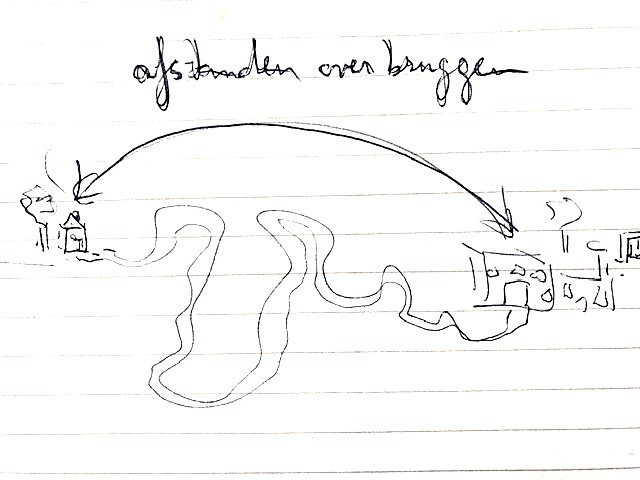 afstanden over bruggen